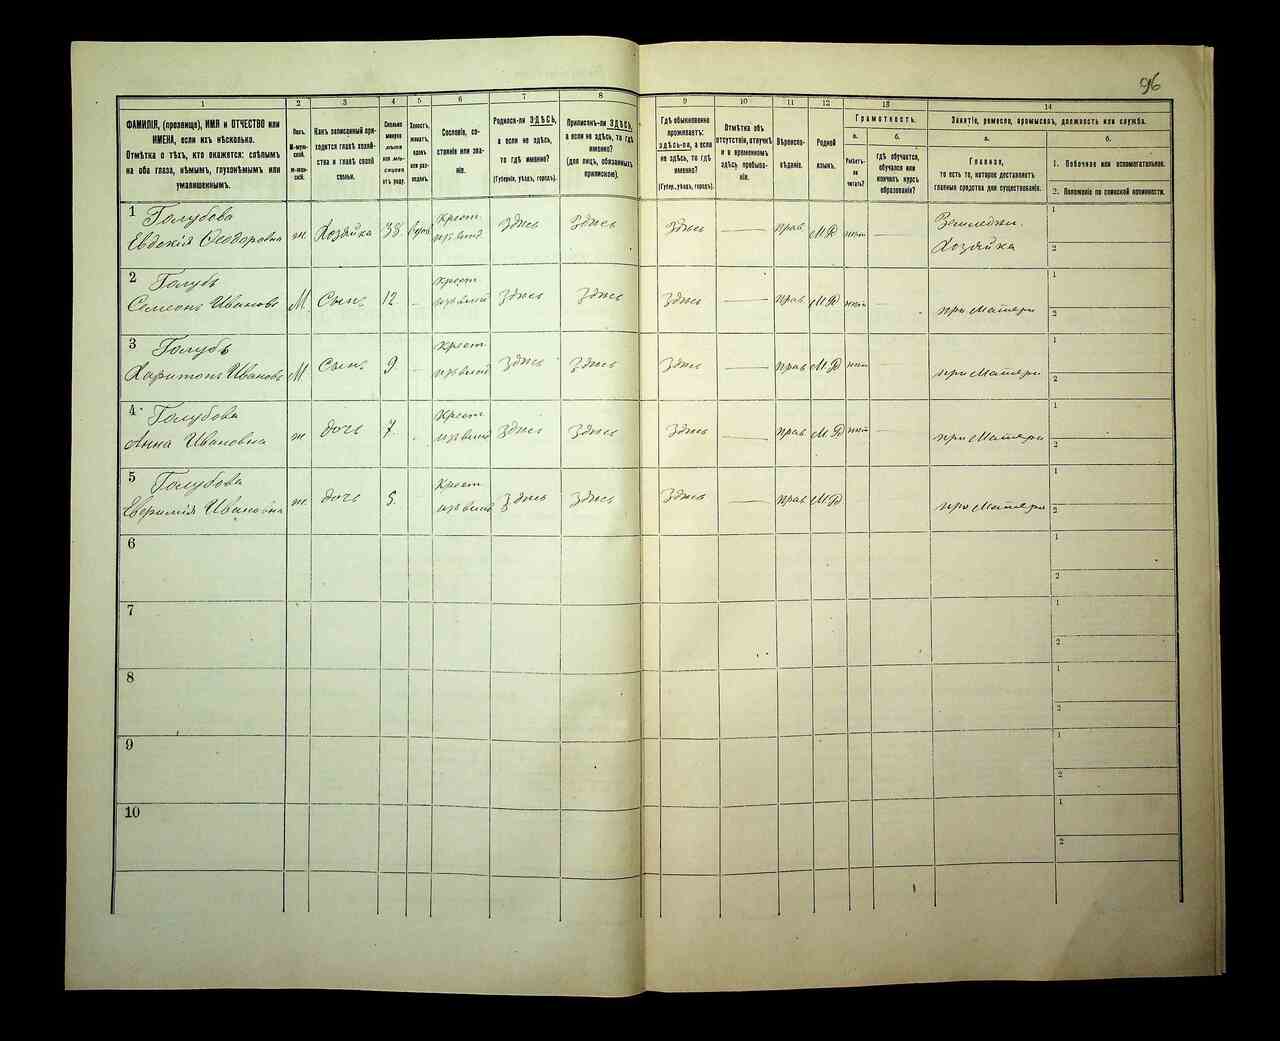 96
1
2
3
4
5
6
7
8
9
10
11
12
13
14
ФАМИЛІЯ, (прозвище), ИМЯ и ОТЧЕСТВО или
ИМЕНА, если ихъ нѣсколько.
Отмѣтка о тѣхъ, кто окажется: слѣпымъ
на оба глаза, нѣмымъ, глухонѣмымъ или
умалишеннымъ.
Полъ.
М-муж-
ской.
ж-жен-
скій.
Какъ записанный при-
ходится главѣ хозяй-
ства и главѣ своей
семьи.
Сколько
минуло
лѣтъ
или мѣ-
сяцевъ
отъ роду.
Холостъ,
женатъ,
вдовъ
или раз-
веденъ.
Сословіе, со-
стояніе или зва-
ніе.
Родился-ли ЗДѢСЬ,
а если не здѣсь,
то гдѣ именно?
(Губернія, уѣздъ, городъ).
Приписанъ-ли ЗДѢСЬ,
а если не здѣсь, то гдѣ
именно?
(для лицъ, обязанныхъ
припискою).
Гдѣ обыкновенно
проживаетъ:
здѣсь-ли, а если
не здѣсь, то гдѣ
именно?
(Губер., уѣздъ, городъ).
Отмѣтка объ
отсутствіи, отлучкѣ
и о временномъ
здѣсь пребыва-
ніи.
Вѣроиспо-
вѣданіе.
Родной
языкъ.
Грамотность.
а.
Умѣетъ-
ли
читать?
б.
гдѣ обучается,
обучался или
кончилъ курсъ
образованія?
Занятіе, ремесло, промыселъ, должность или служба.
а.
Главное,
то есть то, которое доставляетъ
главныя средства для существованія.
б.
1. Побочное или вспомогательное.
2. Положеніе по воинской повинности.
1 Голубова
Евдокія Ѳеодоровна ж Хозяйка 38 вдов Крест. Здѣсь Здѣсь Здѣсь — прав М.Р нѣт — Земледѣл. 1
Хозяйка 2
2 Голубъ
Семеонъ Ивановъ М Сынъ 12 Крест. Здѣсь Здѣсь Здѣсь — прав М.Р нѣт — при Матери 1
2
3 Голубъ
Харитонъ Ивановъ М Сынъ 9 Крест. Здѣсь Здѣсь Здѣсь — прав М.Р нѣт — при Матери 1
2
4 Голубова
Анна Ивановна ж дочь 7 Крест. Здѣсь Здѣсь Здѣсь — прав М.Р нѣт — при Матери 1
2
5 Голубова
Евфимія Ивановна ж дочь 5 Крест. Здѣсь Здѣсь Здѣсь — прав М.Р при Матери 1
2
6 1
2
7 1
2
8 1
2
9 1
2
10 1
2